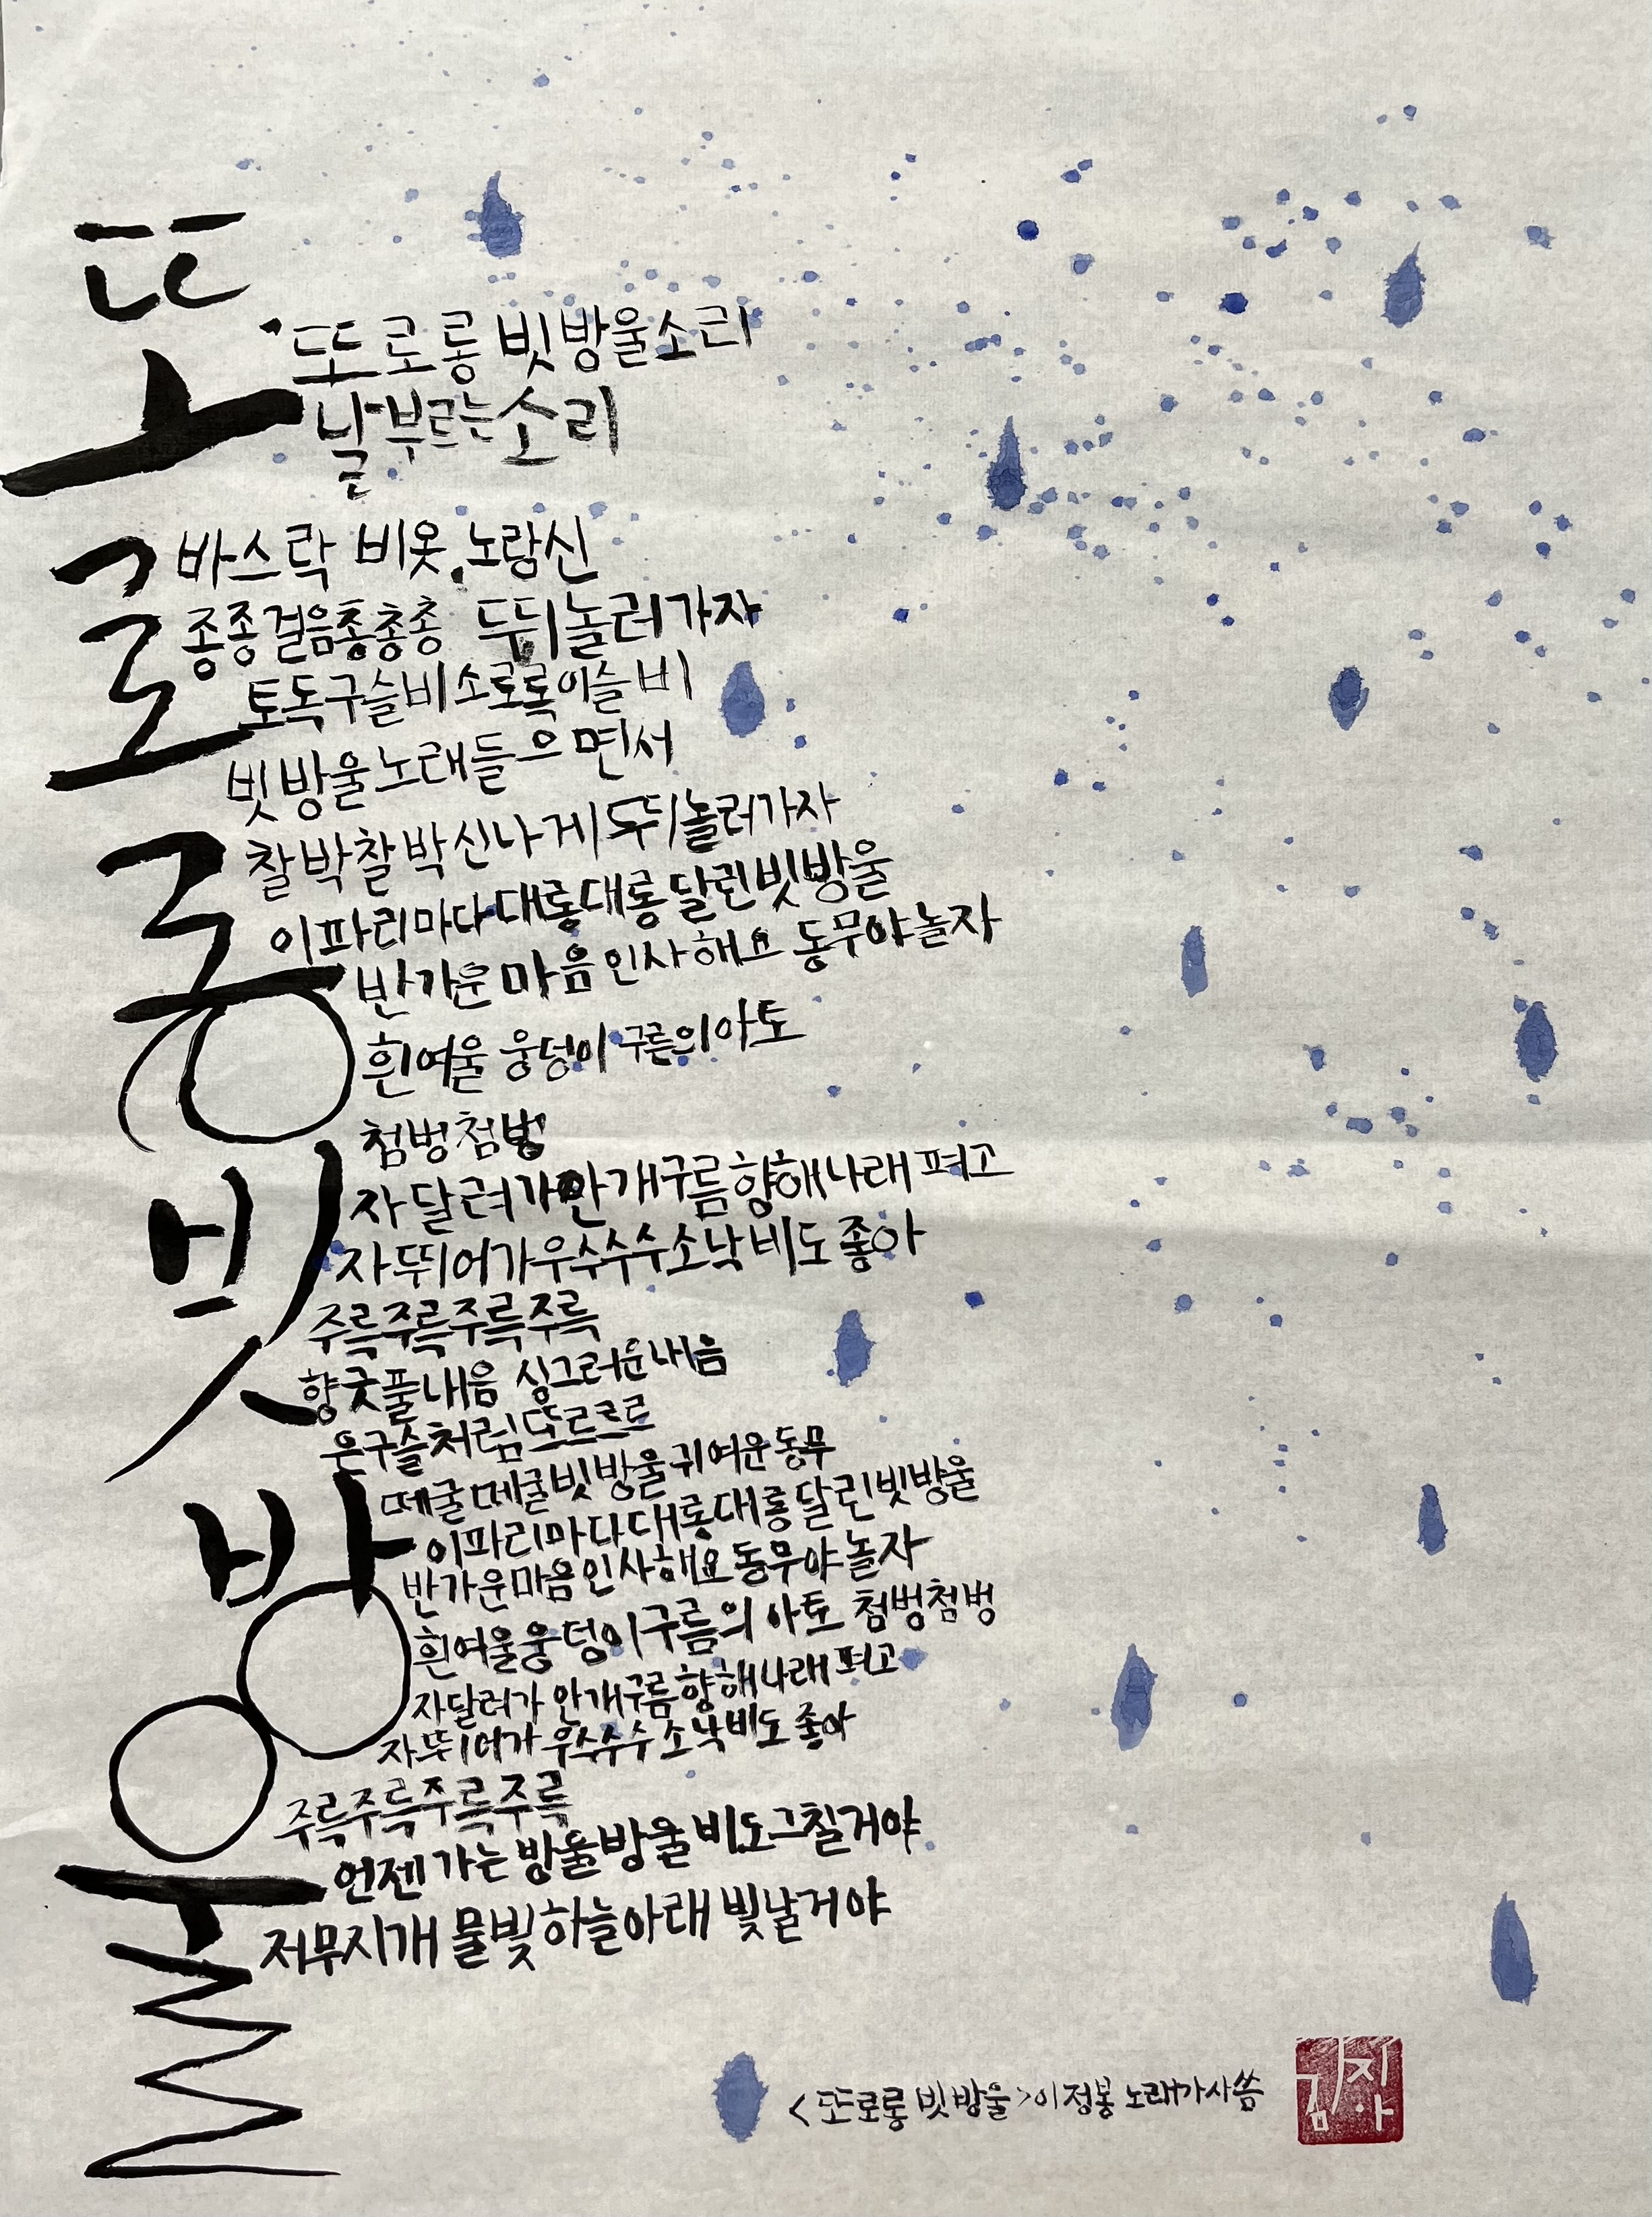 또로롱빗방울
또로롱 빗방울소리
날 부르는 소리
바스락 비옷, 노랑신
종종걸음총총총 두뛰놀러가자
토독구슬비소로록이슬비
빗방울노래들으면서
찰박찰박신나게두뛰놀러가자
이파리마다대롱대롱달린빗방울
반가운마음인사해요 동무야놀자
흰여울 웅덩이 구름의아토
첨벙첨벙
자달려가안개구름향해나래펴고
자뛰어가우수수수소낙비도좋아
주륵주륵주륵주륵
향긋풀내음 싱그러운내음
은구슬처럼또르르르
떼굴떼굴빗방울귀여운동무
이파리마다대롱대롱달린빗방울
반가운마음인사해요동무야놀자
흰여울웅덩이구름의아토 첨벙첨벙
자달려가 안개구름향해나래펴고
자뛰어가 우수수수소낙비도좋아
주륵주륵주륵주륵
언젠가는방울방울비도그칠거야
저무지개물빛하늘아래빛날거야
<또로롱빗방울>이정봉노래가사씀